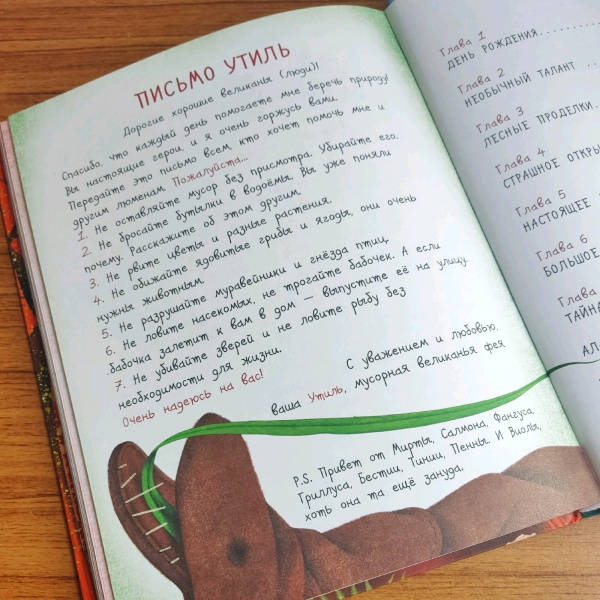 ПИСЬМО УТИЛЬ
Дорогие хорошие великаны (люди)!
Спасибо, что каждый день помогаете мне беречь природу!
Вы настоящие герои, и я очень горжусь вами.
Передайте это письмо всем, кто хочет помочь мне и
другим люменам. Пожалуйста...
1. Не оставляйте мусор без присмотра. Убирайте его.
2. Не бросайте бутылки в водоёмы. Вы уже поняли
почему. Расскажите об этом другим.
3. Не рвите цветы и разные растения.
4. Не обижайте ядовитые грибы и ягоды, они очень
нужны животным.
5. Не разрушайте муравейники и гнёзда птиц.
6. Не ловите насекомых, не трогайте бабочек. А если
бабочка залетит к вам в дом — выпустите её на улицу.
7. Не убивайте зверей и не ловите рыбу без
необходимости для жизни.
Очень надеюсь на вас!
С уважением и любовью,
ваша Утиль, мусорная великанья фея
P.S. Привет от Мирты, Салмона, Фангуса,
Гриллуса, Бестии, Тинии, Пенны. И Виолы,
хоть она та ещё зануда.
Глава 1
ДЕНЬ РОЖДЕНИЯ..........
Глава 2
НЕОБЫЧНЫЙ ТАЛАНТ
Глава 3
ЛЕСНЫЕ ПРОДЕЛКИ..
Глава 4
СТРАШНОЕ
Глава 5
НАСТОЯЩЕЕ
Глава 6
БОЛЬШОЕ
Глава